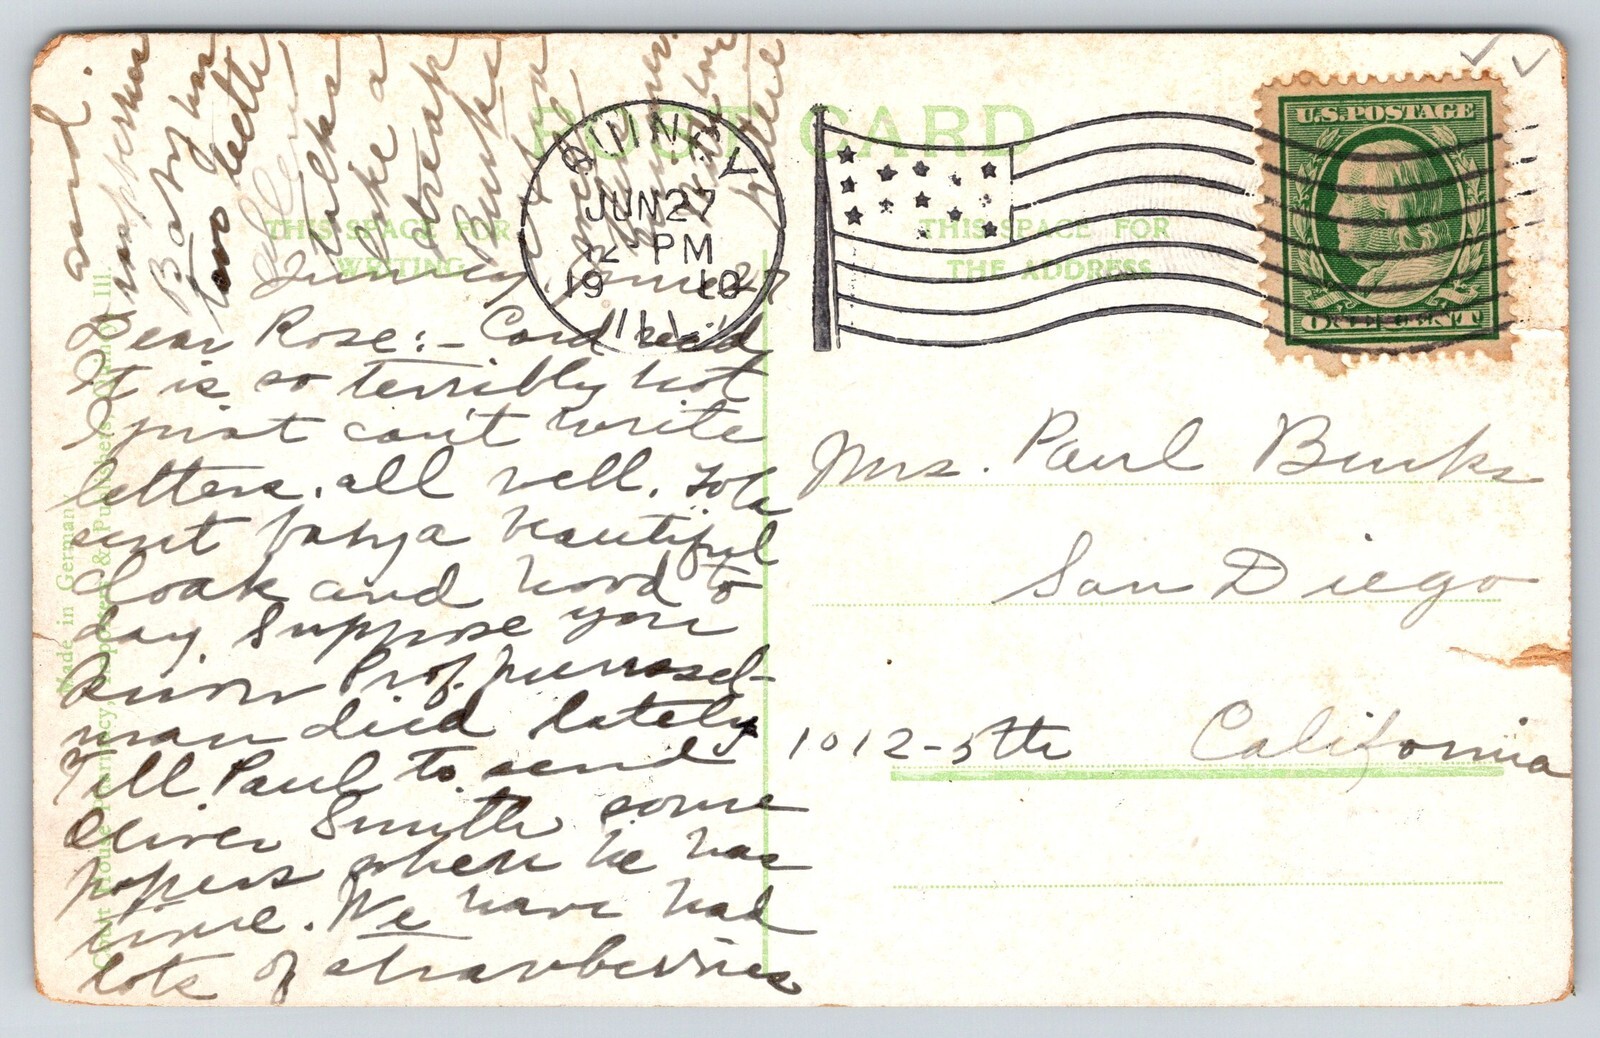 POST CARD
THIS SPACE FOR
WRITING
THIS SPACE FOR
THE ADDRESS
QUINCY
JUN 27
12 PM
1910
ILL.
U.S. POSTAGE
ONE CENT
Quincy, June 27
Dear Rose:- Card rec'd
It is so terribly hot
I just can't write
letters. all well. Lola
sent baby a beautiful
cloak and hood to
day. Suppose you
know Prof. Musssel-
man died lately
Tell Paul to send
Oliver Smith some
papers when he has
time. We have had
lots of strawberries
and
raspberries
Baby has
two teeth
talks
like a
streak
Mrs. Paul Burks
San Diego
1012-5th California
Made in Germany